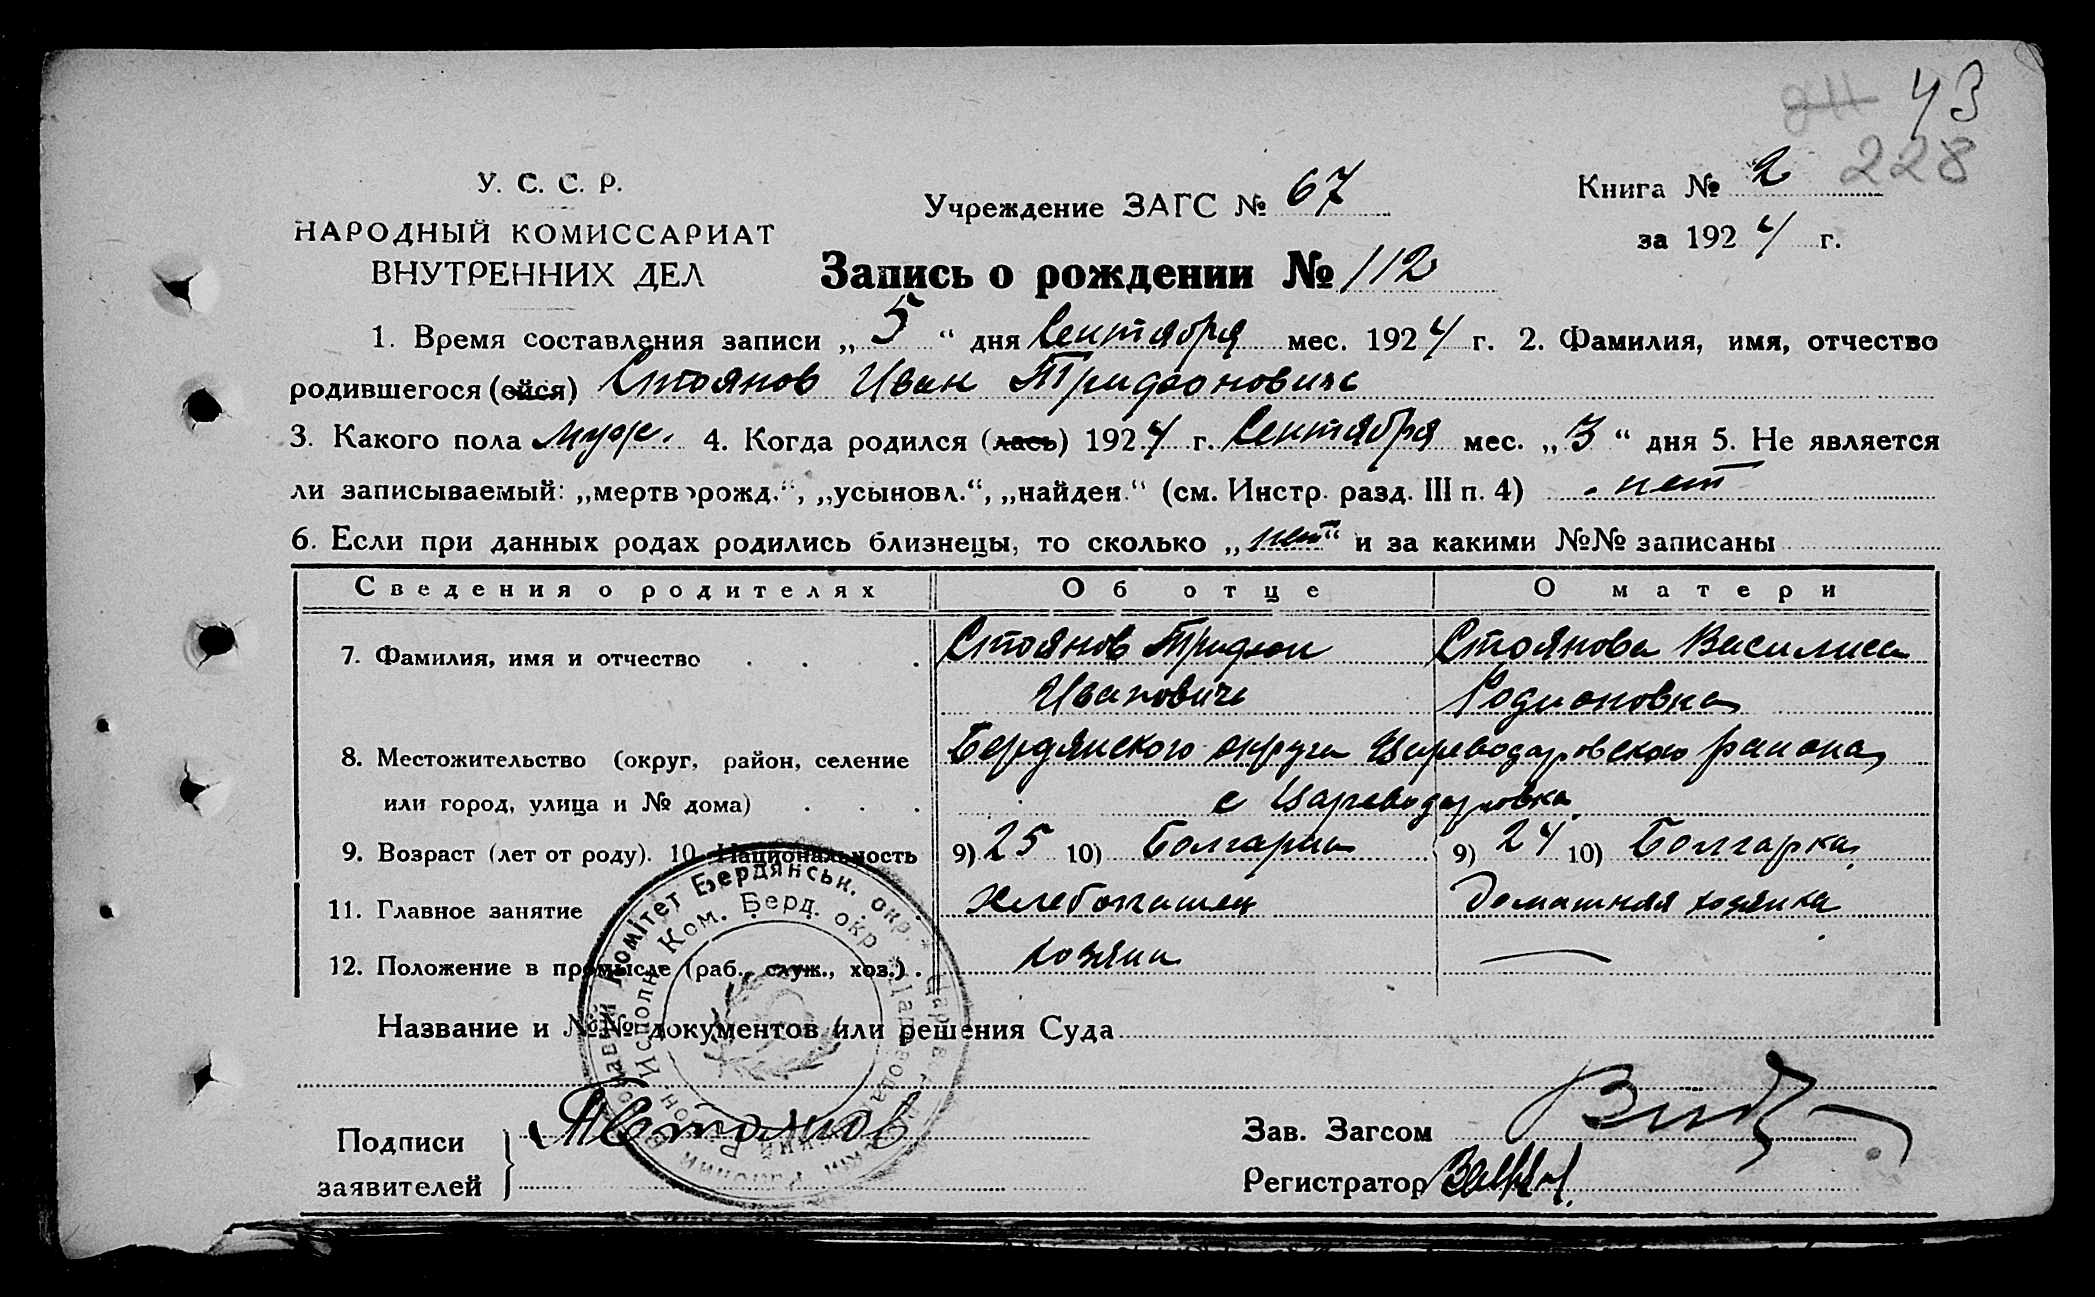 43
211
228
У. С. С. Р.
НАРОДНЫЙ КОМИССАРИАТ
ВНУТРЕННИХ ДЕЛ
Учреждение ЗАГС № 67
Книга № 2
за 1924 г.
Запись о рождении № 112
1. Время составления записи „5“ дня Сентября мес. 1924 г. 2. Фамилия, имя, отчество
родившегося (ейся) Стоянов Иван Трифонович
3. Какого пола муж. 4. Когда родился (лась) 1924 г. Сентября мес. „3“ дня 5. Не является
ли записываемый: „мертворожд.“, „усыновл.“, „найден.“ (см. Инстр. разд. III п. 4) нет
6. Если при данных родах родились близнецы, то сколько „нет“ и за какими №№ записаны
Сведения о родителях Об отце О матери
7. Фамилия, имя и отчество . . . Стоянов Трифон Стоянова Василиса
Иванович Родионовна
8. Местожительство (округ, район, селение Бердянского округа Цареводаровского района
или город, улица и № дома) . . . с Цареводаровка
9. Возраст (лет от роду). 10. Национальность 9) 25 10) Болгарин 9) 24 10) Болгарка
11. Главное занятие Хлебопашец Домашняя хозяйка
12. Положение в промысле (раб., служ., хоз.) . хозяин —
Название и №№ документов или решения Суда
Подписи Стоянов Зав. Загсом
заявителей Регистратор
Комітет Бердянськ. окр.
Исполн. Ком. Берд. окр